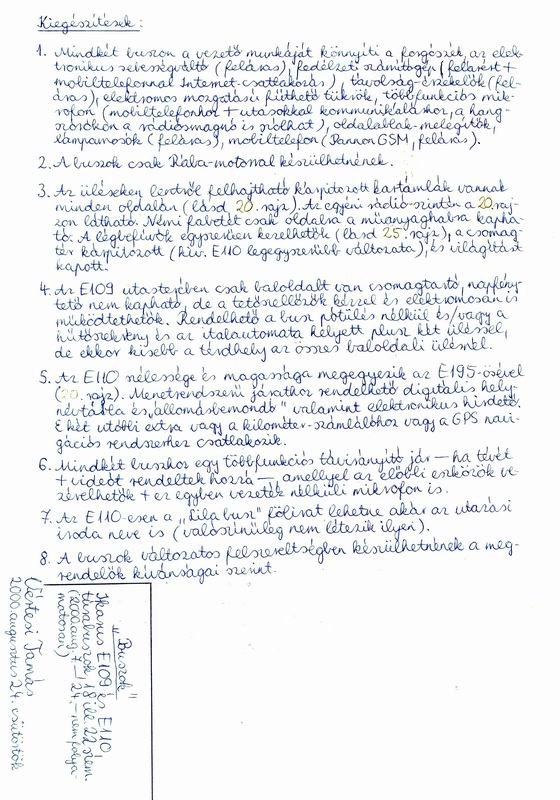 Kiegészítések:
1. Mindkét buszon a vezető munkáját könnyíti a forgószék, az elek-
tronikus sebességváltó (feláras), fedélzeti számítógép (felárért +
mobiltelefonnal Internet-csatlakozás), távolság-érzékelők (fel-
áras), elektromos mozgatású fűthető tükrök, többfunkciós mik-
rofon (mobiltelefonhoz + utasokkal kommunikáláshoz, a hang-
szórókon a rádiósmagnó is szólhat), oldalablak-melegítők,
lámpamosók (feláras), mobiltelefon (Pannon GSM, feláras).
2. A buszok csak Rába-motorral készülhetnének.
3. Az üléseken lentről felhajtható kárpitozott kartámlák vannak
minden oldalán (lásd 20. rajz). Az egyéni rádió szintén a 20. raj-
zon látható. Némi fabetét csak oldalra a műanyaghabra kapha-
tó. A légbefúvók egyszerűen kezelhetők (lásd 25. rajz), a csomag-
tér kárpitozott (kiv. E110 legegyszerűbb változata), és világítást
kapott.
4. Az E109 utasterében csak baloldalt van csomagtartó, napfény-
tető nem kapható, de a tetőszellőzők kézzel és elektromosan is
működtethetők. Rendelhető a busz pótülés nélkül és/vagy a
hűtőszekrény és az italautomata helyett plusz két üléssel,
de ekkor kisebb a térdhely az összes baloldali ülésnél.
5. Az E110 szélessége és magassága megegyezik az E195-ösével
(20. rajz). Menetrendszerű járathoz rendelhető digitális hely-
névtábla és „állomásbemondó" valamint elektronikus hirdető.
E két utóbbi extra vagy a kilométer-számlálóhoz vagy a GPS navi-
gációs rendszerhez csatlakozik.
6. Mindkét buszhoz egy többfunkciós távirányító jár — ha tévét
+ videót rendeltek hozzá —, amellyel az előbbi eszközök ve-
zérelhetők + ez egyben vezeték nélküli mikrofon is.
7. Az E110-esen a „Lila busz" fölirat lehetne akár az utazási
iroda neve is (valószínűleg nem létezik ilyen).
8. A buszok változatos felszereltségben készülhetnének a meg-
rendelők kívánságai szerint.
„Buszok"
Ikarus E109 és E110
túrabuszok, 18 ill. 22 szem.
(2000. aug. 7 — 24. — nem folya-
matosan)
Vértesi Tamás
2000. augusztus 24. csütörtök